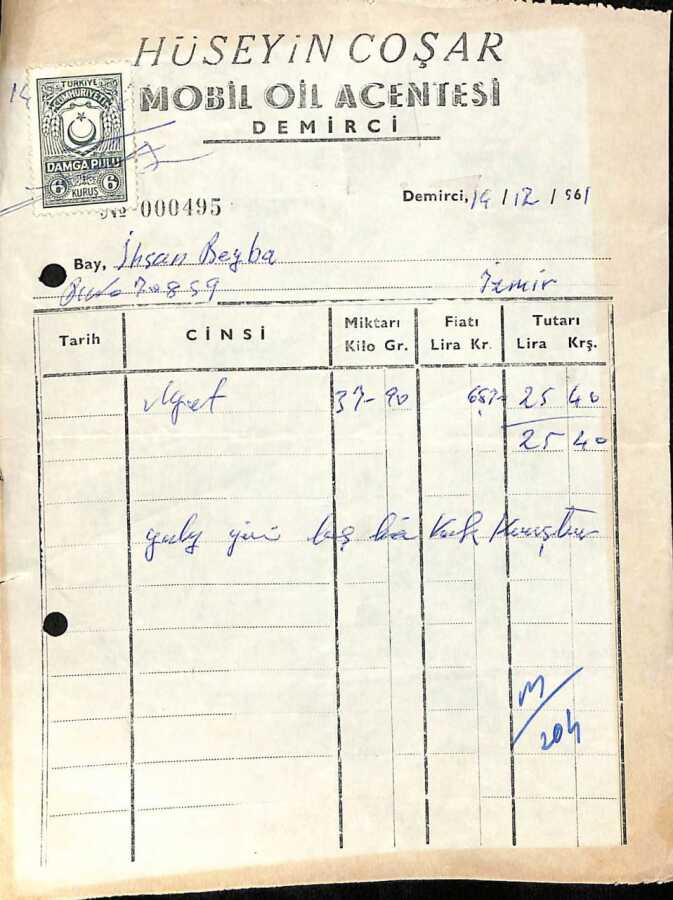 HÜSEYİN COŞAR
MOBİL OİL ACENTESİ
DEMİRCİ
TÜRKİYE
CUMHURİYETİ
DAMGA PULU
6 KURUŞ 6
№ 000495
Demirci, 14 / 12 / 961
Bay, İhsan Beyba
70859 İzmir
Tarih CİNSİ Miktarı Kilo Gr. Fiatı Lira Kr. Tutarı Lira Krş.
37-90 25 40
25 40
yirmi beş lira Kırk Kuruştur
M/204